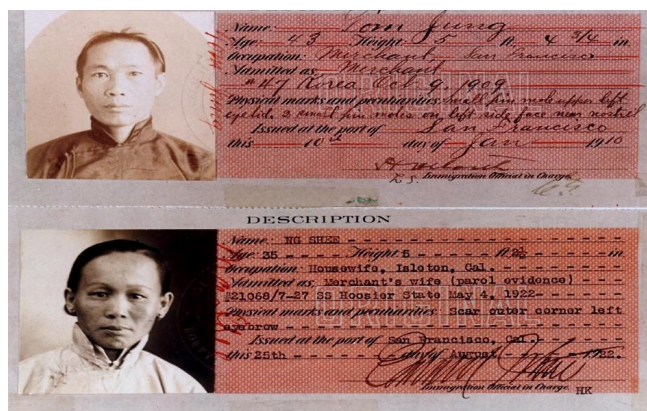 Name: Tom Jung
Age: 43 Height: 5 ft. 4 3/4 in
Occupation: Merchant, San Francisco
Admitted as Merchant
#47 Korea Oct 9, 1909
Physical marks and peculiarities: small pin mole upper left
eyelid. 2 small pin moles on left side face near nostril
Issued at the port of San Francisco
this 10th day of Jan 1910
Immigration Official in Charge.
ORIGINAL
DESCRIPTION
Name: NG SHEE
Age: 35 Height: 5 ft in
Occupation: Housewife, Isleton, Cal.
Admitted as Merchant's wife (parol evidence)
#21068/7-27 SS Hoosier State May 4, 1922
Physical marks and peculiarities: Scar outer corner left
eyebrow
Issued at the port of San Francisco, Cal.
this 25th day of August, 1922.
Immigration Official in Charge. HK
ORIGINAL